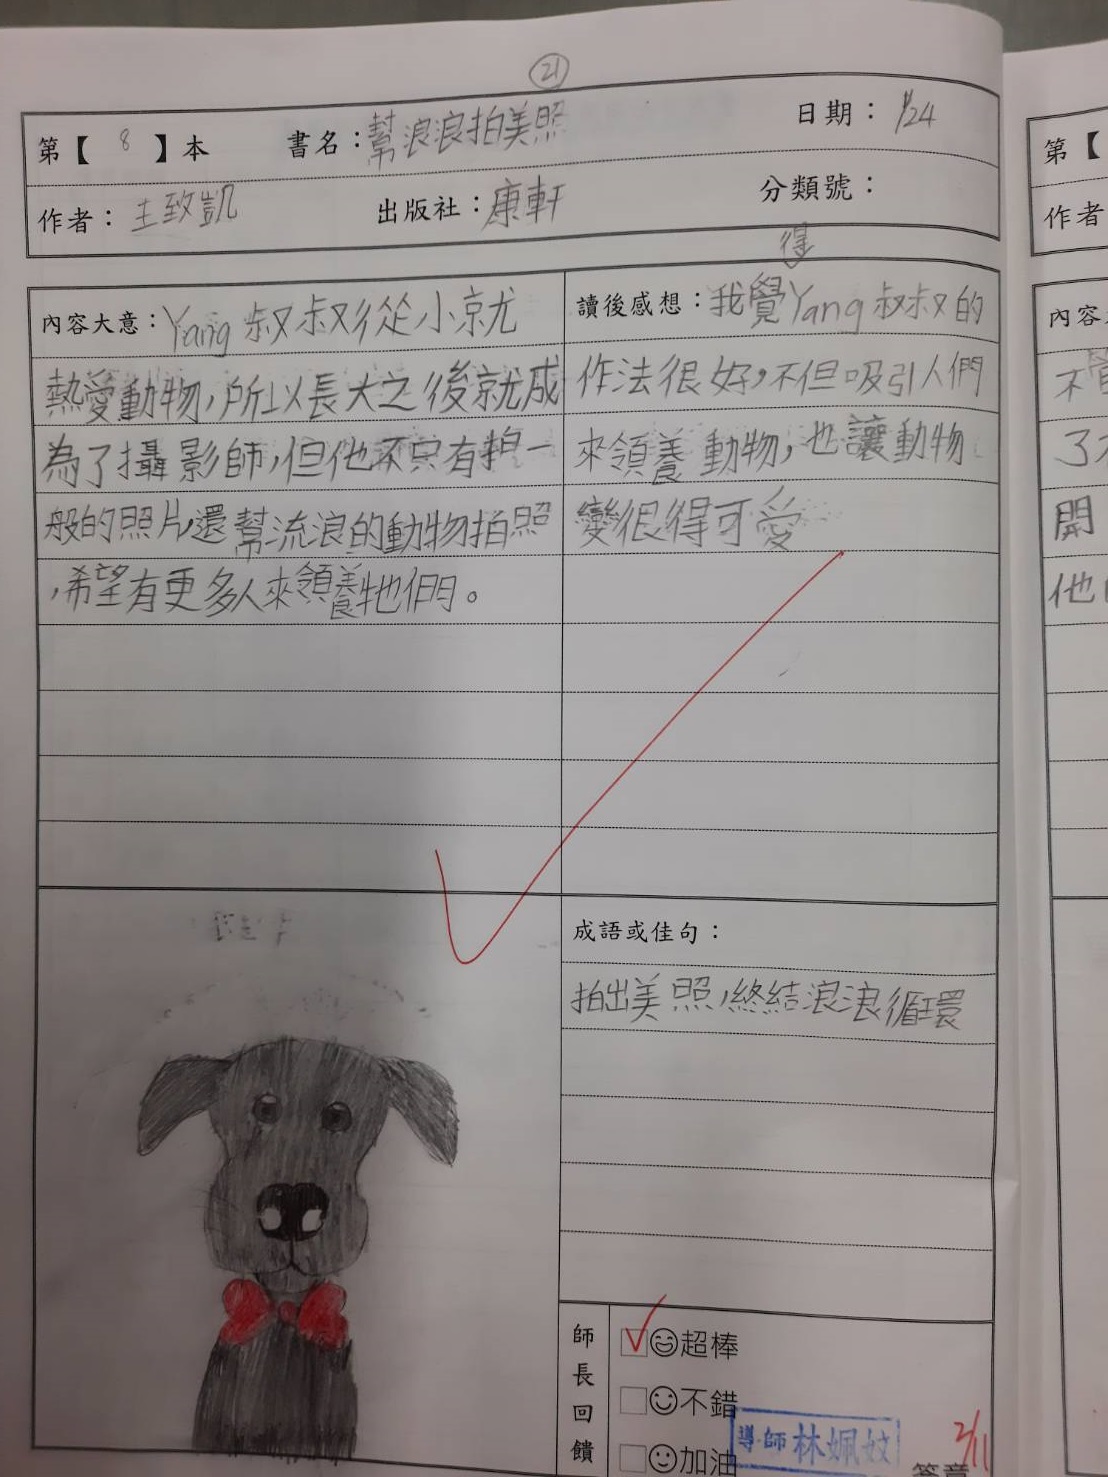 21
第【 8 】本 書名：幫浪浪拍美照 日期：1/24
作者：王致凱 出版社：康軒 分類號：
得
內容大意：Yang叔叔從小就
熱愛動物，所以長大之後就成
為了攝影師，但他不只有拍一
般的照片，還幫流浪的動物拍照
，希望有更多人來領養牠們。
讀後感想：我覺Yang叔叔的
作法很好，不但吸引人們
來領養動物，也讓動物
變很得可愛
成語或佳句：
拍出美照，終結浪浪循環
師長回饋
超棒
不錯
加油
導師 林姵妏
簽章
2/11
第【
作者
內容
不
了
開
他